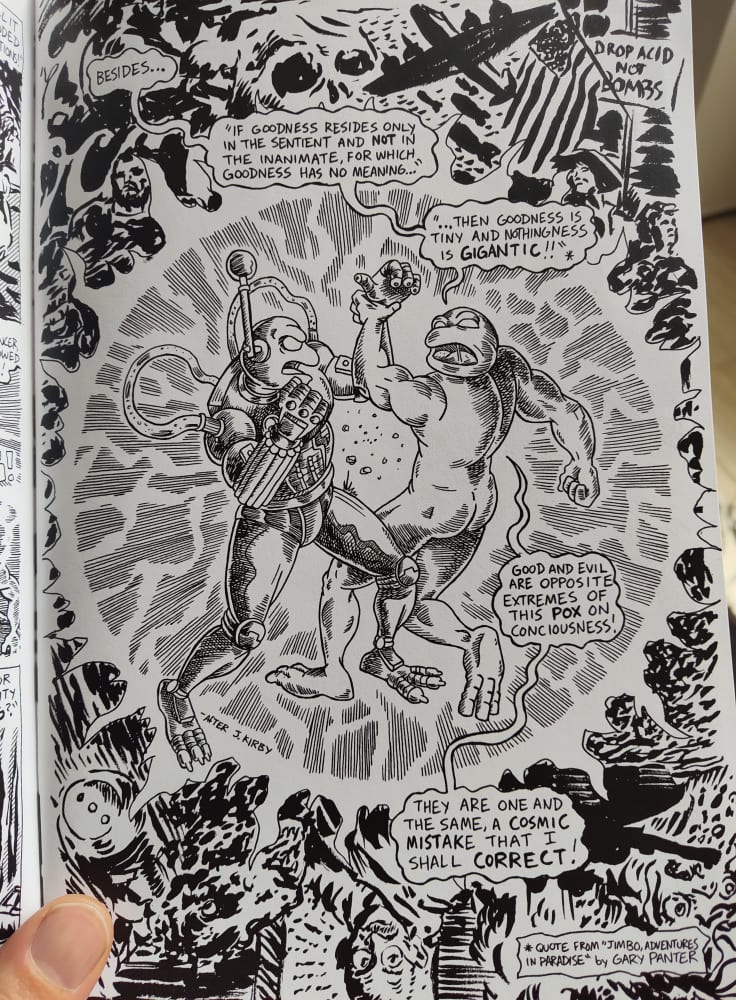 L IT
DED
TIONS!!
DROP ACID
NOT
BOMBS!
BESIDES...
"IF GOODNESS RESIDES ONLY
IN THE SENTIENT AND NOT IN
THE INANIMATE, FOR WHICH
GOODNESS HAS NO MEANING..."
"...THEN GOODNESS IS
TINY AND NOTHINGNESS
IS GIGANTIC!!" *
NCER
OWED
!
GOOD AND EVIL
ARE OPPOSITE
EXTREMES OF
THIS POX ON
CONCIOUSNESS!
OR
ITY
?"
"AFTER J. KIRBY
THEY ARE ONE AND
THE SAME, A COSMIC
MISTAKE THAT I
SHALL CORRECT!
* QUOTE FROM "JIMBO, ADVENTURES
IN PARADISE" by GARY PANTER